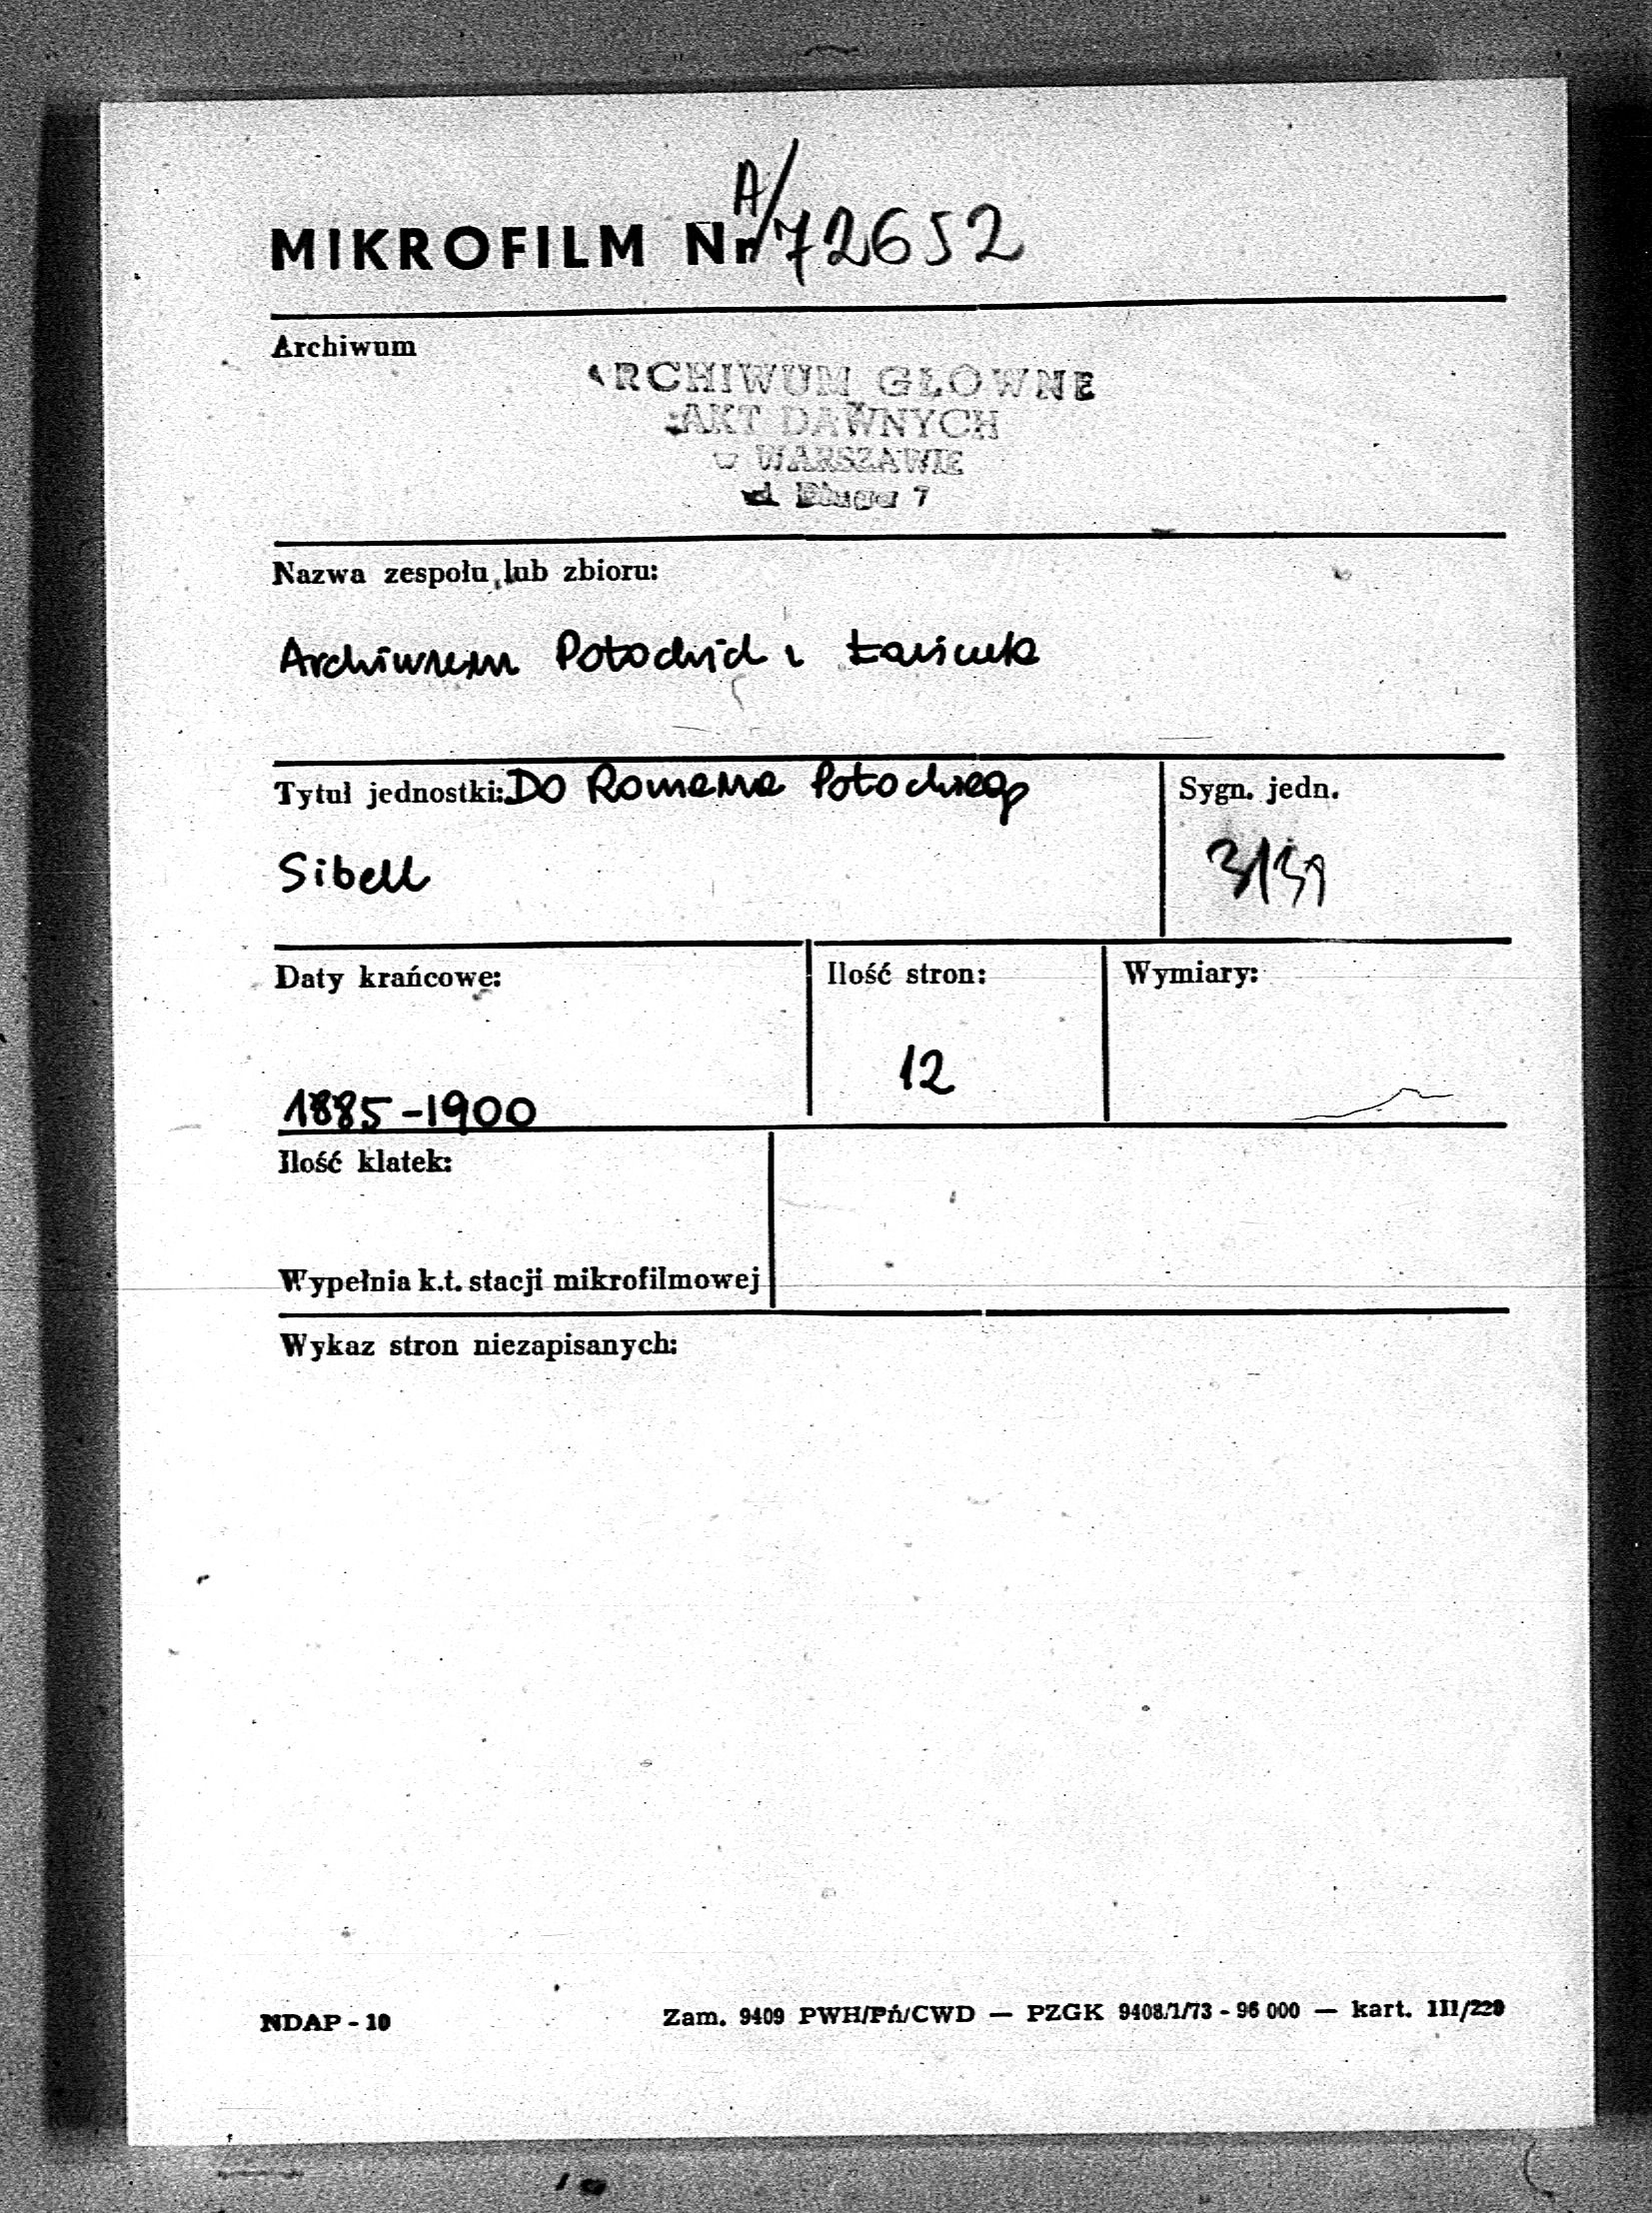 MIKROFILM Nr A/72652
Archiwum
ARCHIWUM GŁÓWNE
AKT DAWNYCH
w WARSZAWIE
ul. Długa 7
Nazwa zespołu lub zbioru:
Archiwum Potockich z Łańcuta
Tytuł jednostki: Do Romana Potockiego
Sygn. jedn.
Sibell
Daty krańcowe:
Ilość stron:
Wymiary:
12
1885-1900
Ilość klatek:
Wypełnia k.t. stacji mikrofilmowej
Wykaz stron niezapisanych:
NDAP - 10
Zam. 9409 PWH/Pń/CWD — PZGK 9408/1/73 - 96 000 — kart. III/220